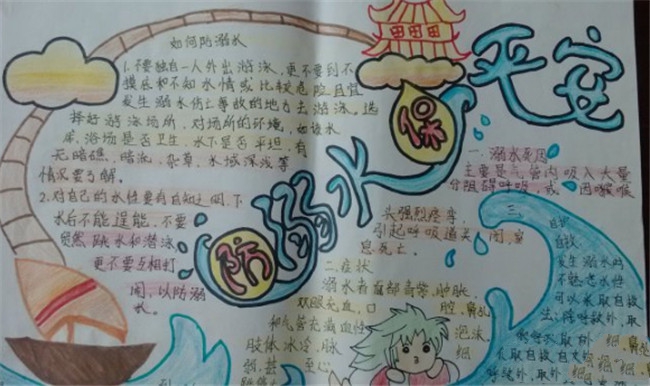 防溺水保平安
如何防溺水
1.不要独自一人外出游泳,更不要到不
摸底和不知水情或比较危险且宜
发生溺水伤亡事故的地方去游泳。选
择好游泳场所,对场所的环境,如该水
库、浴场是否卫生,水下是否平坦,有
无暗礁、暗流、杂草,水域深浅等
情况要了解。
2.对自己的水性要有自知之明,下
水后不能逞能,不要
贸然跳水和潜泳
更不要互相打
闹,以防溺
水。
一、溺水死因
主要是气管内吸入大量
分阻碍呼吸,或 因喉喉
头强烈痉挛,
引起呼吸道关 闭、窒
息死亡。
二、症状
溺水者面部青紫、肿胀、
双眼充血,口 腔、鼻孔
和气管充满血性 泡沫。
肢体冰冷,脉 细
弱,甚至 心
三、
自救
发生溺水时
不熟悉水性
可以采取自救
法: